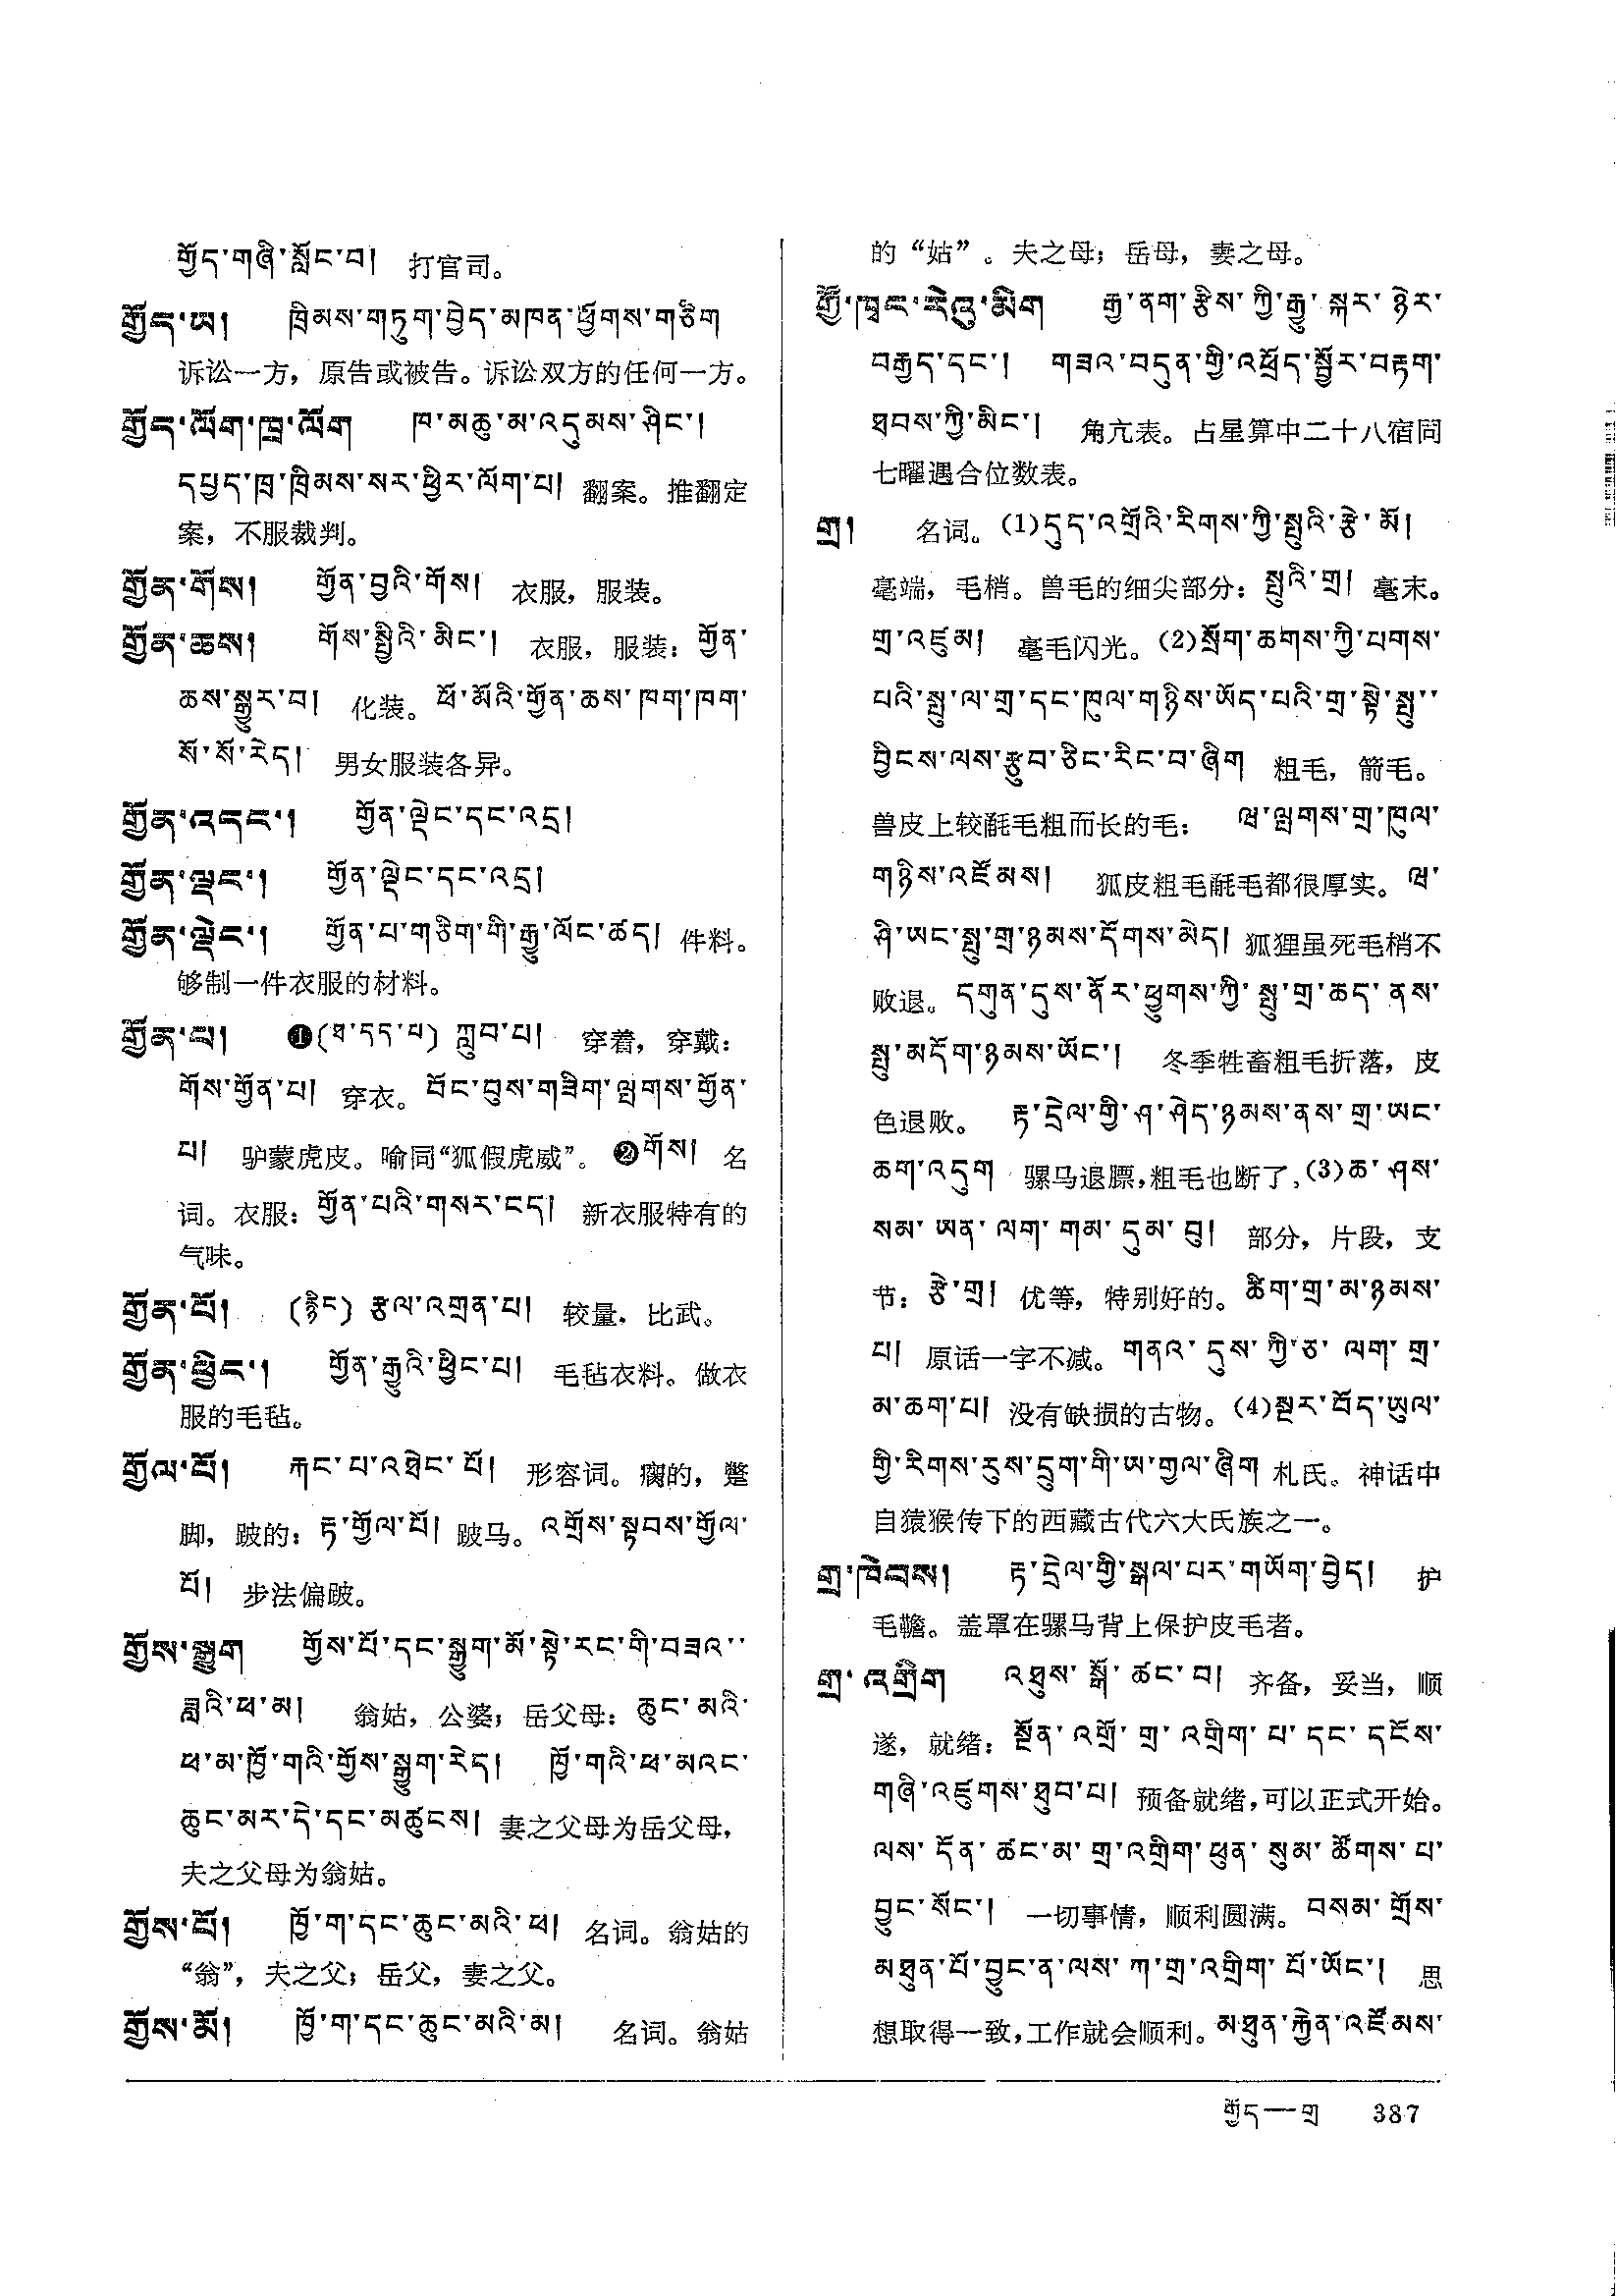 གྱོད་གཞི་སློང་བ། 打官司。
གྱོད་ཡ། ཁྲིམས་གཏུག་བྱེད་མཁན་ཕྱོགས་གཅིག
诉讼一方，原告或被告。诉讼双方的任何一方。
གྱོད་ལོག་ཁྲ་ལོག ཁ་མཆུ་མ་འདུམས་ཤིང་།
དཔྱད་ཁྲ་ཁྲིམས་སར་ཕྱིར་ལོག་པ། 翻案。推翻定
案，不服裁判。
གྱོན་གོས། གྱོན་བྱའི་གོས། 衣服，服装。
གྱོན་ཆས། གོས་སྤྱིའི་མིང་། 衣服，服装：གྱོན་
ཆས་སྒྱུར་བ། 化装。ཕོ་མོའི་གྱོན་ཆས་ཁག་ཁག་
སོ་སོ་རེད། 男女服装各异。
གྱོན་འདང་། གྱོན་ལྡེང་དང་འདྲ།
གྱོན་ལྡང་། གྱོན་ལྡེང་དང་འདྲ།
གྱོན་ལྡེང་། གྱོན་པ་གཅིག་གི་རྒྱུ་ལོང་ཚད། 件料。
够制一件衣服的材料。
གྱོན་པ། ❶(ཐ་དད་པ) ཀླུབ་པ། 穿着，穿戴：
གོས་གྱོན་པ། 穿衣。བོང་བུས་གཟིག་ལྤགས་གྱོན་
པ། 驴蒙虎皮。喻同“狐假虎威”。❷གོས། 名
词。衣服：གྱོན་པའི་གསར་ངད། 新衣服特有的
气味。
གྱོན་པོ། (རྙིང) རྩལ་འགྲན་པ། 较量．比武。
གྱོན་ཕྱིང་། གྱོན་རྒྱུའི་ཕྱིང་པ། 毛毡衣料。做衣
服的毛毡。
གྱོལ་པོ། རྐང་པ་འཐེང་པོ། 形容词。瘸的，蹩
脚，跛的：རྟ་གྱོལ་པོ། 跛马。འགྲོས་སྟབས་གྱོལ་
པོ། 步法偏跛。
གྱོས་སྒྱུག གྱོས་པོ་དང་སྒྱུག་མོ་སྟེ་རང་གི་བཟའ་
ཟླའི་ཕ་མ། 翁姑，公婆；岳父母：ཆུང་མའི་
ཕ་མ་ཁྱོ་གའི་གྱོས་སྒྱུག་རེད། ཁྱོ་གའི་ཕ་མའང་
ཆུང་མར་དེ་དང་མཚུངས། 妻之父母为岳父母，
夫之父母为翁姑。
གྱོས་པོ། ཁྱོ་ག་དང་ཆུང་མའི་ཕ། 名词。翁姑的
“翁”，夫之父；岳父，妻之父。
གྱོས་མོ། ཁྱོ་ག་དང་ཆུང་མའི་མ། 名词。翁姑
的“姑”。夫之母；岳母，妻之母。
གྱོ་ཁང་རེའུ་མིག རྒྱ་ནག་རྩིས་ཀྱི་རྒྱུ་སྐར་ཉེར་
བརྒྱད་དང་། གཟའ་བདུན་གྱི་འཕྲོད་སྦྱོར་བརྟག་
ཐབས་ཀྱི་མིང་། 角亢表。占星算中二十八宿同
七曜遇合位数表。
གྲ། 名词。(1)དུད་འགྲོའི་རིགས་ཀྱི་སྤུའི་རྩེ་མོ།
毫端，毛梢。兽毛的细尖部分：སྤུའི་གྲ། 毫末。
གྲ་འཛུམ། 毫毛闪光。(2)སྲོག་ཆགས་ཀྱི་པགས་
པའི་སྤུ་ལ་གྲ་དང་ཁུལ་གཉིས་ཡོད་པའི་གྲ་སྟེ་སྤུ་
བྱིངས་ལས་རྩུབ་ཅིང་རིང་བ་ཞིག 粗毛，箭毛。
兽皮上较毹毛粗而长的毛： ཝ་ལྤགས་གྲ་ཁུལ་
གཉིས་འཛོམས། 狐皮粗毛毹毛都很厚实。ཝ་
ཤི་ཡང་སྤུ་གྲ་ཉམས་དོགས་མེད། 狐狸虽死毛梢不
败退。དགུན་དུས་ནོར་ཕྱུགས་ཀྱི་སྤུ་གྲ་ཆད་ནས་
སྤུ་མདོག་ཉམས་ཡོང་། 冬季牲畜粗毛折落，皮
色退败。 རྟ་དྲེལ་གྱི་ཤ་ཤེད་ཉམས་ནས་གྲ་ཡང་
ཆག་འདུག 骡马退膘，粗毛也断了。(3)ཆ་ཤས་
སམ་ཡན་ལག་གམ་དུམ་བུ། 部分，片段，支
节：རྩེ་གྲ། 优等，特别好的。ཚིག་གྲ་མ་ཉམས་
པ། 原话一字不减。གནའ་དུས་ཀྱི་ཅ་ལག་གྲ་
མ་ཆག་པ། 没有缺损的古物。(4)སྔར་བོད་ཡུལ་
གྱི་རིགས་རུས་དྲུག་གི་ཡ་གྱལ་ཞིག 札氏。神话中
自猿猴传下的西藏古代六大氏族之一。
གྲ་ཁེབས། རྟ་དྲེལ་གྱི་སྒལ་པར་གཡོག་བྱེད། 护
毛韂。盖罩在骡马背上保护皮毛者。
གྲ་འགྲིག འཐུས་སྒོ་ཚང་བ། 齐备，妥当，顺
遂，就绪：སྔོན་འགྲོ་གྲ་འགྲིག་པ་དང་དངོས་
གཞི་འཛུགས་ཐུབ་པ། 预备就绪，可以正式开始。
ལས་དོན་ཚང་མ་གྲ་འགྲིག་ཕུན་སུམ་ཚོགས་པ་
བྱུང་སོང་། 一切事情，顺利圆满。བསམ་གྲོས་
མཐུན་པོ་བྱུང་ན་ལས་ཀ་གྲ་འགྲིག་པོ་ཡོང་། 思
想取得一致，工作就会顺利。མཐུན་རྐྱེན་འཛོམས་
གྱོད—གྲ 387